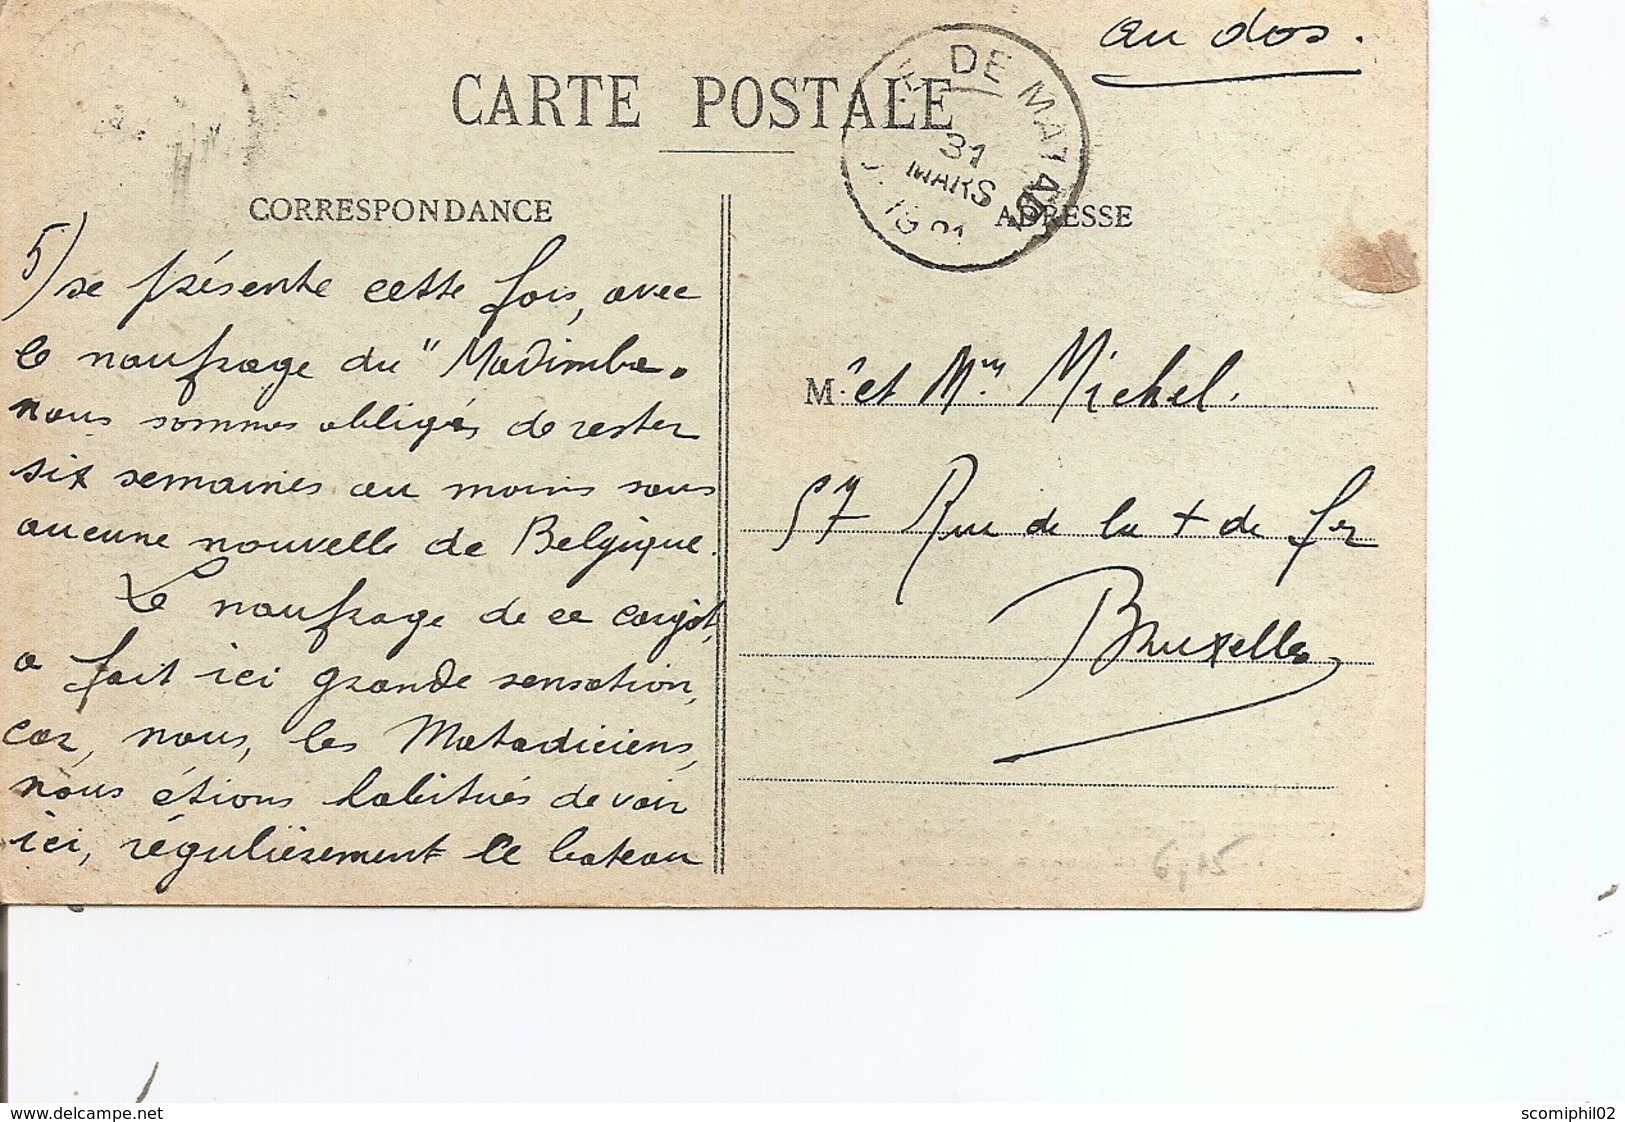 au dos.
CARTE POSTALE
DE MATADI
31
MARS
CORRESPONDANCE
ADRESSE
5) se présente cette fois, avec
le naufrage du "Madimba.
nous sommes obligés de rester
six semaines au moins sans
aucune nouvelle de Belgique.
Le naufrage de ce cargot,
a fait ici grande sensation,
car, nous, les Matadiciens,
nous étions habitués de voir
ici, régulièrement le bateau
M. et Mme Michel.
57 Rue de la + de fer
Bruxelles
6,15
www.delcampe.net
scomiphil02